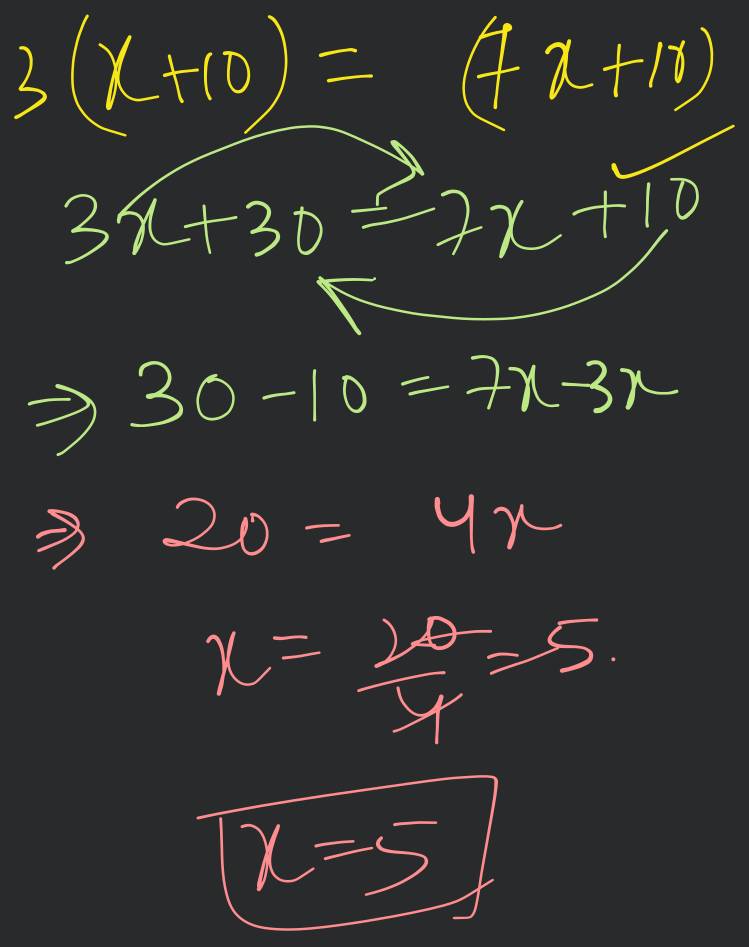 3(x+10) = (7x+10)
3x+30 = 7x+10
⇒ 30-10 = 7x-3x
⇒ 20 = 4x
x = 20/4 = 5.
x=5